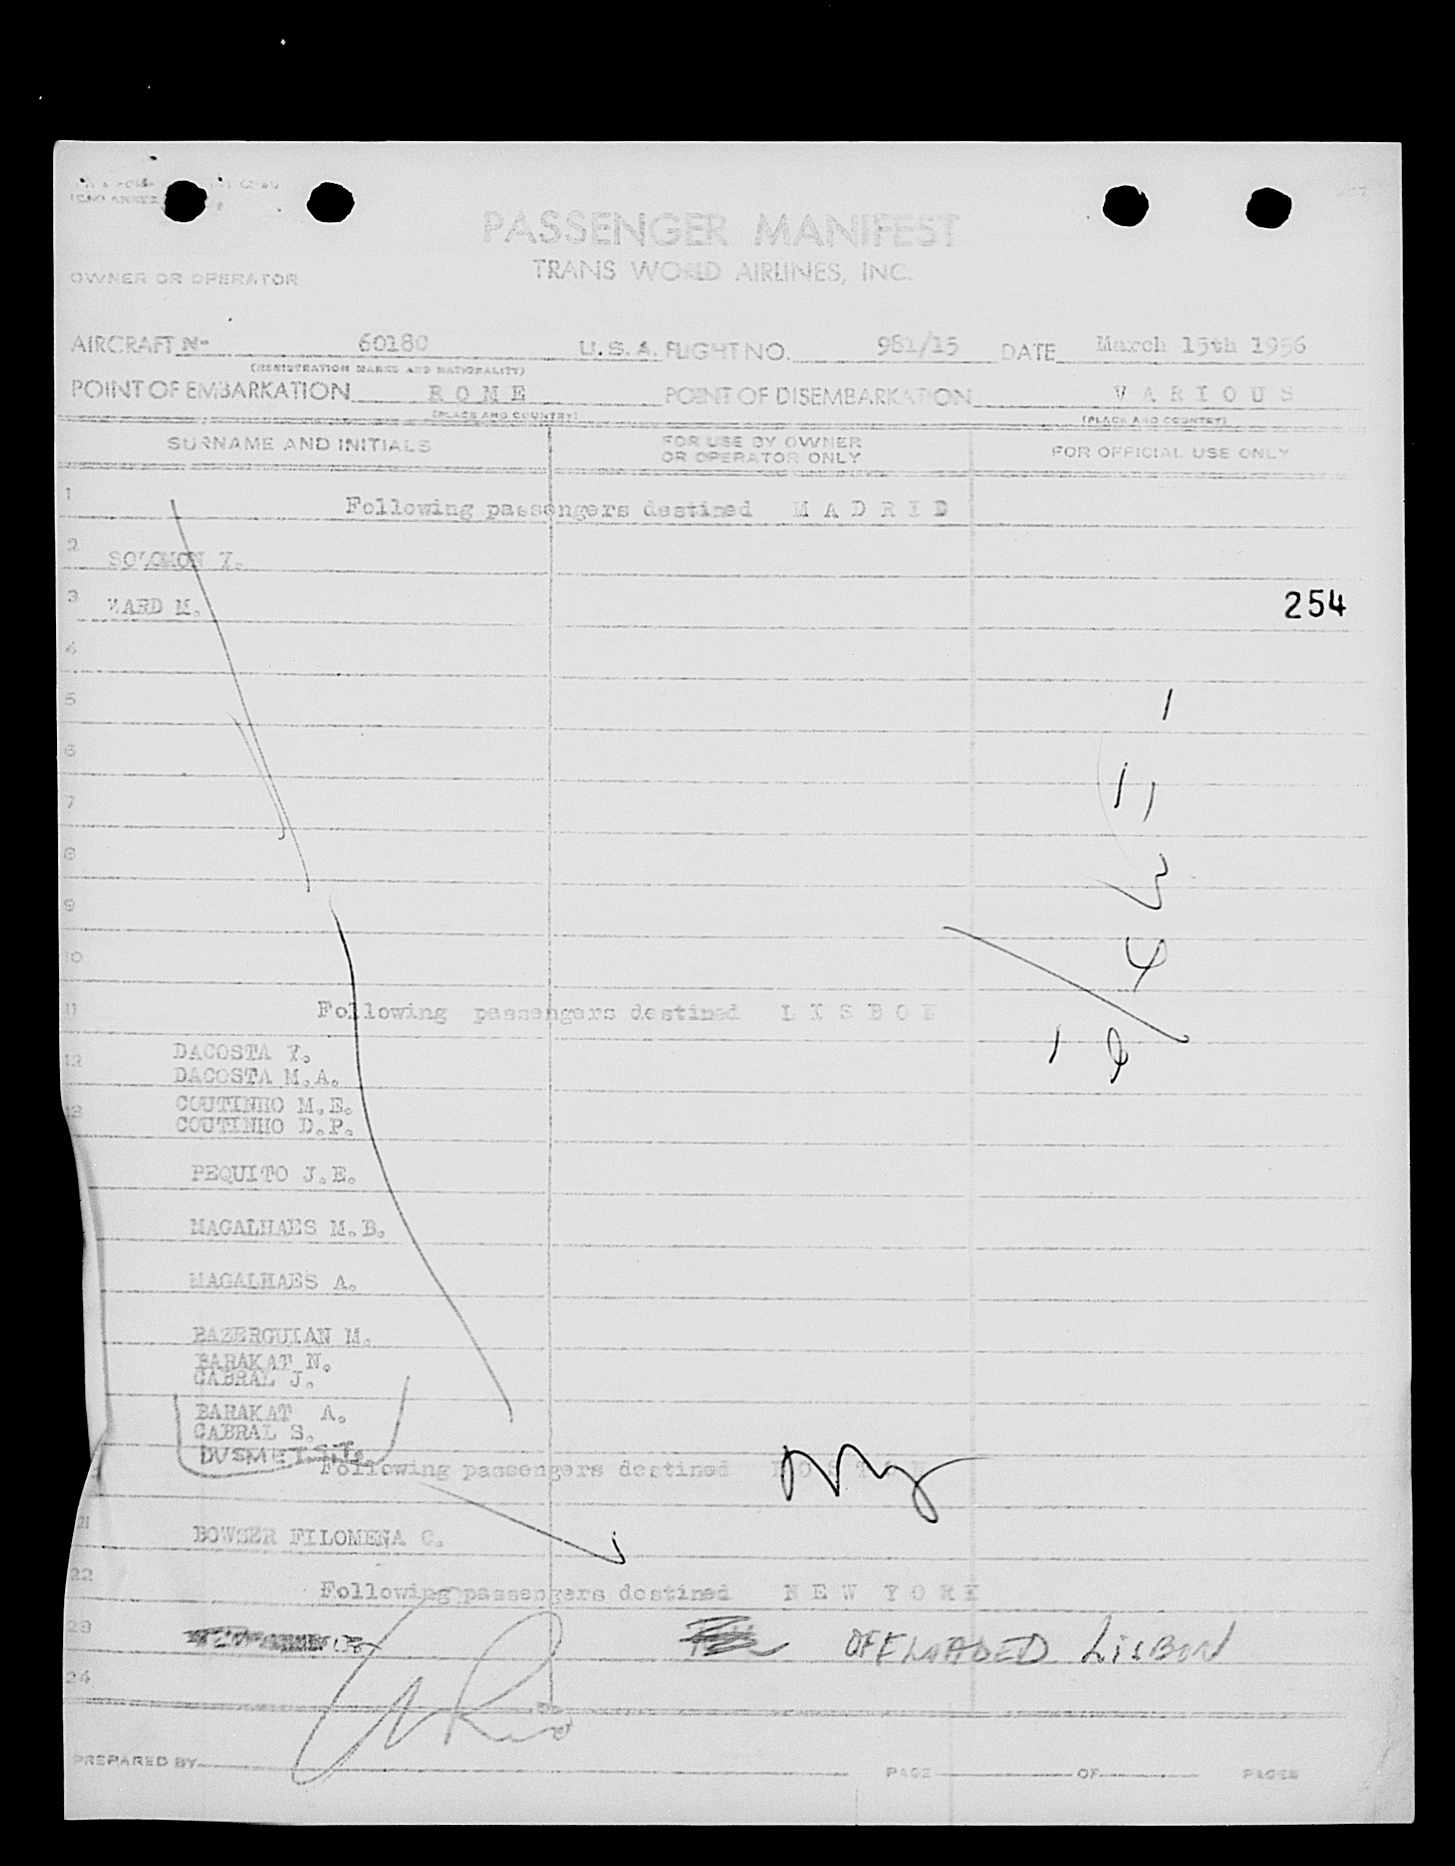 PASSENGER MANIFEST
TRANS WORLD AIRLINES, INC.
OWNER OR OPERATOR
AIRCRAFT N- 60180 U.S.A. FLIGHT NO. 981/15 DATE March 15th 1956
(REGISTRATION MARKS AND NATIONALITY)
POINT OF EMBARKATION R O M E POINT OF DISEMBARKATION V A R I O U S
(PLACE AND COUNTRY) (PLACE AND COUNTRY)
SURNAME AND INITIALS FOR USE BY OWNER OR OPERATOR ONLY FOR OFFICIAL USE ONLY
1 Following passengers destined M A D R I D
2 SOLOMON
3 ZARD M.
254
4
5
6
7
8
9
10
11 Following passengers destined L I S B O N
12 DACOSTA
DACOSTA M.A.
13 COUTINHO M.E.
COUTINHO D.P.
PEQUITO J.E.
MAGALHAES M.B.
MAGALHAES A.
BAZERGUIAN M.
BARAKAT N.
CABRAL J.
BARAKAT A.
CABRAL S.
DUSMET
Following passengers destined NY
21 BOWSER FILOMENA C.
22 Following passengers destined N E W Y O R K
23 OFFLOADED LISBON
24
PREPARED BY PAGE OF PAGES